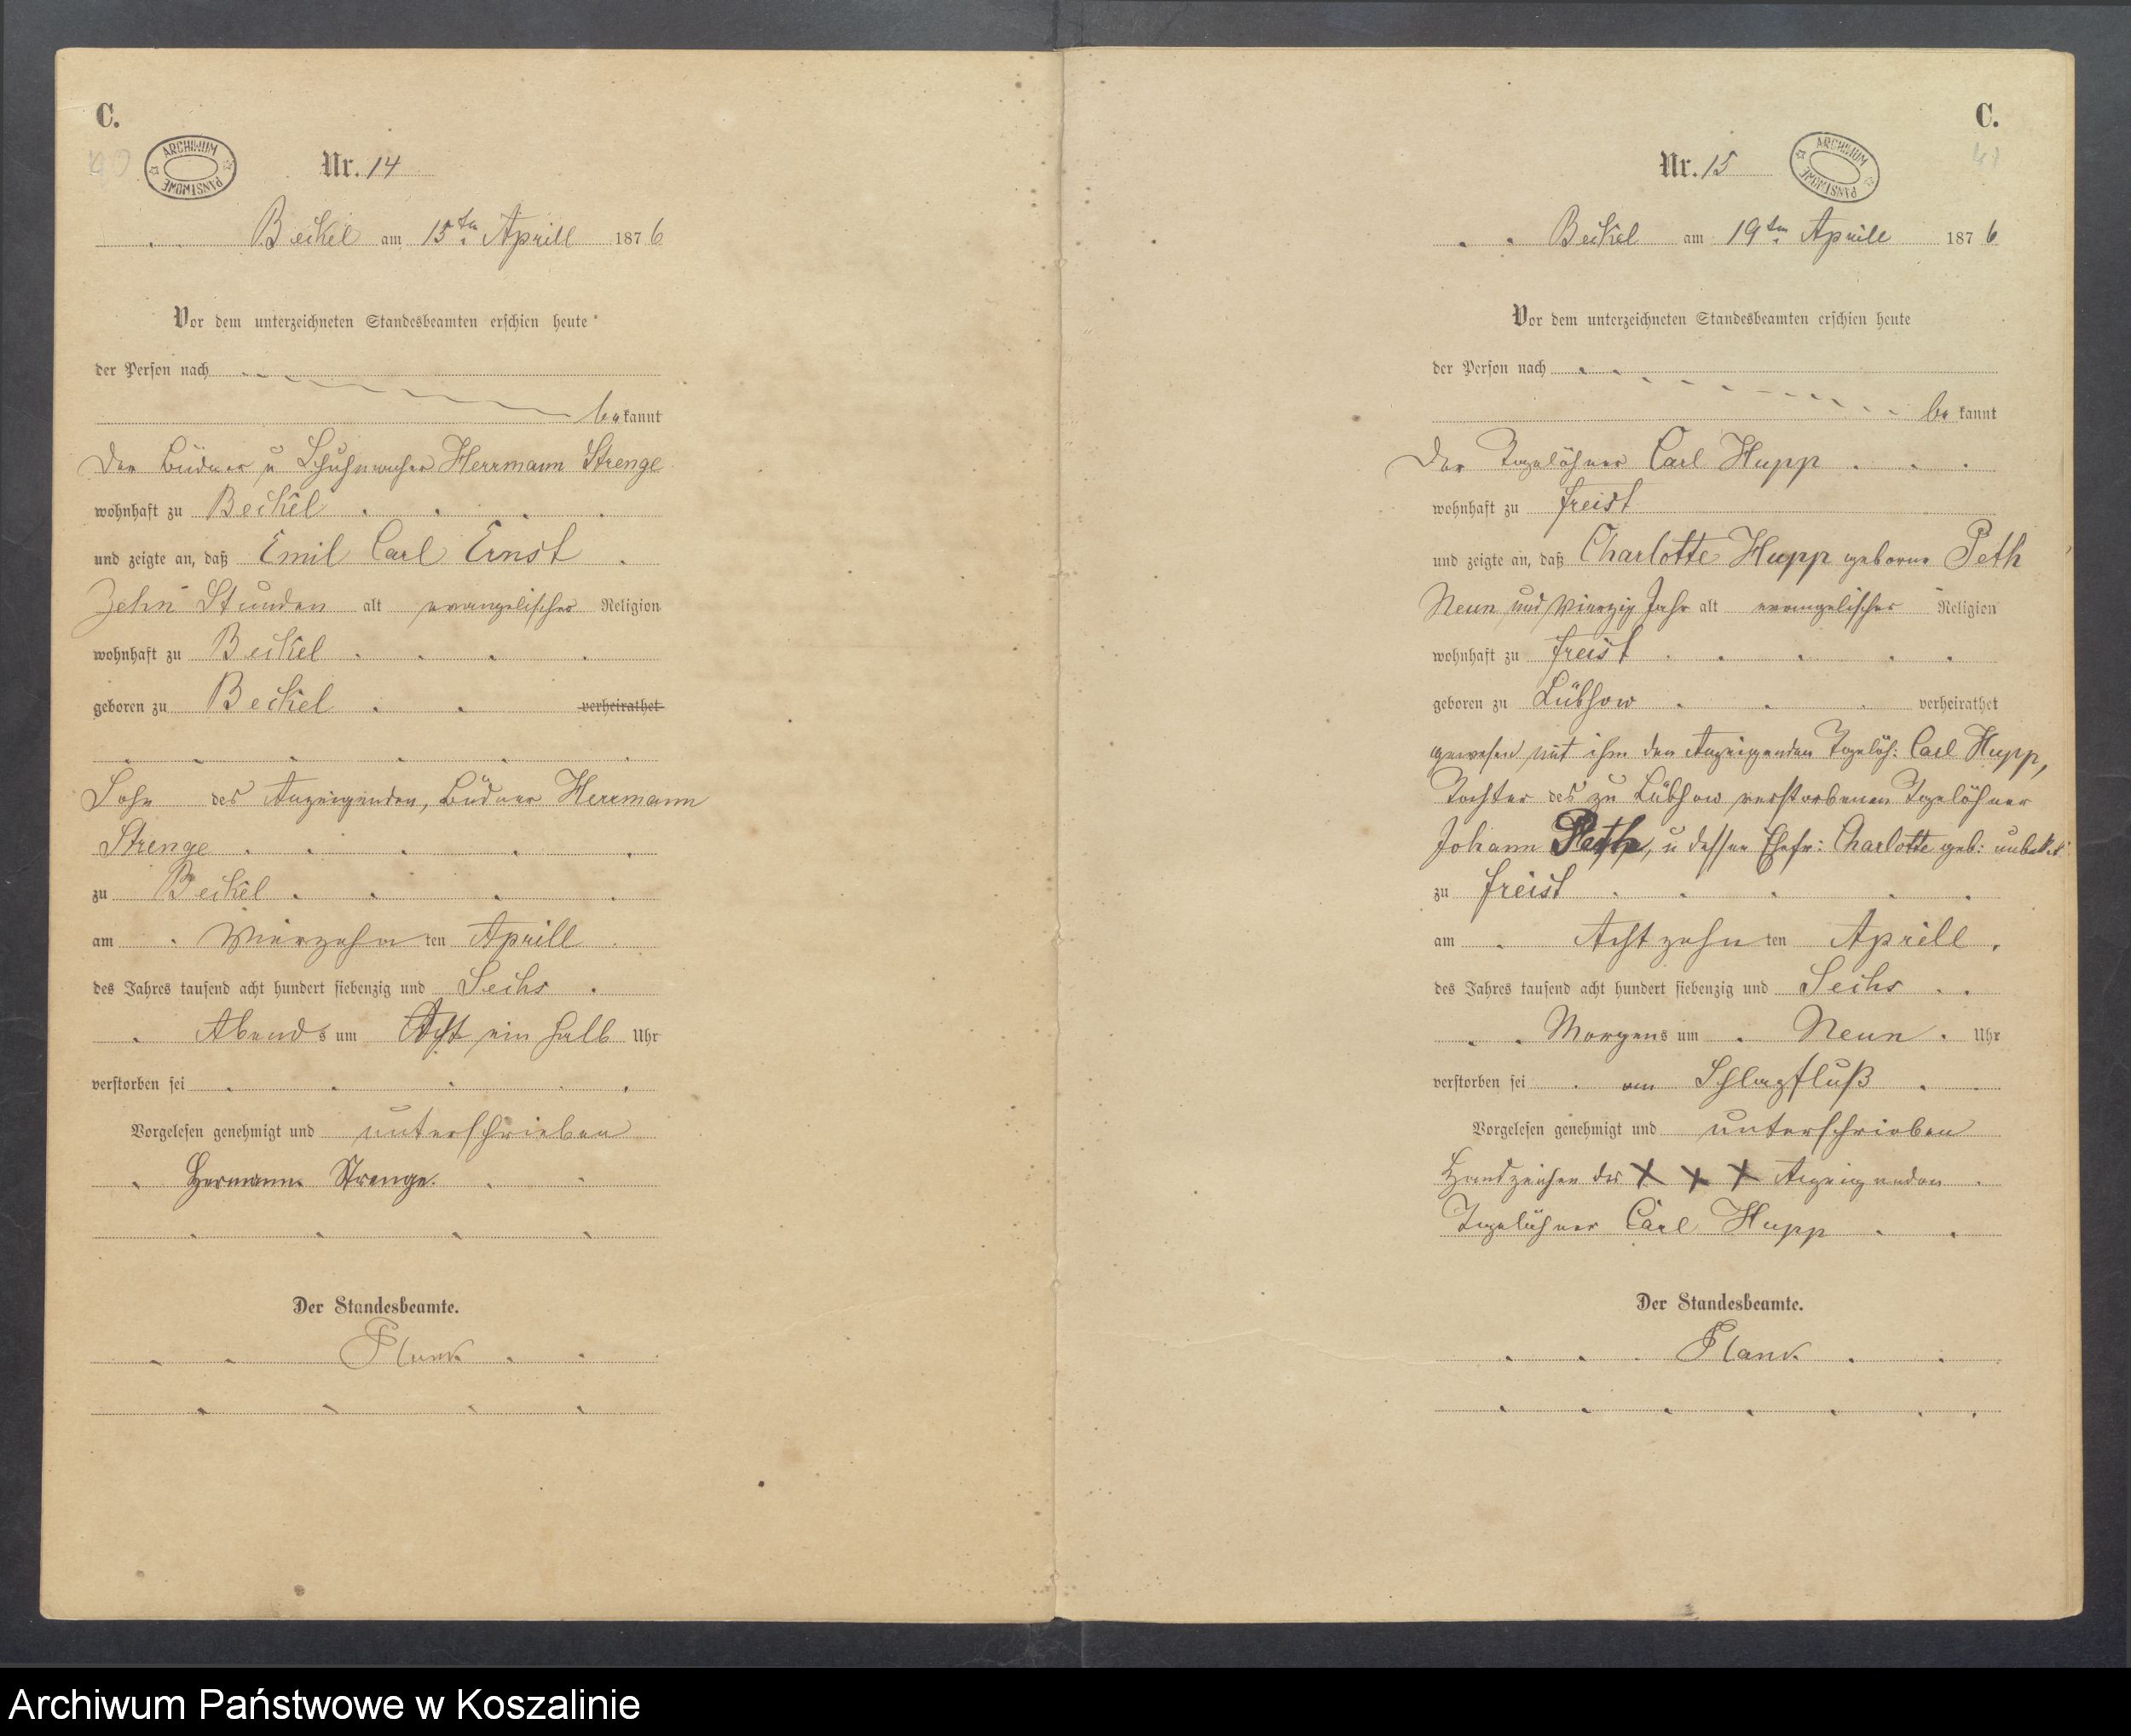 C.
ARCHIWUM PAŃSTWOWE
Nr. 14
Beckel am 15ten Aprill 1876
Vor dem unterzeichneten Standesbeamten erschien heute
der Person nach
bekannt
Der Büdner u Schuhmacher Herrmann Strenge
wohnhaft zu Beckel
und zeigte an, daß Emil Carl Ernst
Zehn Stunden alt evangelischer Religion
wohnhaft zu Beckel
geboren zu Beckel verheirathet
Sohn des Anzeigenden, Büdner Herrmann
Strenge
zu Beckel
am Vierzehnten Aprill
des Jahres tausend acht hundert siebenzig und Sechs
Abends um Acht ein halb Uhr
verstorben sei
Vorgelesen genehmigt und unterschrieben
Hermann Strenge.
Der Standesbeamte.
Planck
C.
41
ARCHIWUM PAŃSTWOWE
Nr. 15
Beckel am 19ten Aprill 1876
Vor dem unterzeichneten Standesbeamten erschien heute
der Person nach
bekannt
Der Tagelöhner Carl Hupp
wohnhaft zu Freist
und zeigte an, daß Charlotte Hupp geborne Peth
Neun und Vierzig Jahr alt evangelischer Religion
wohnhaft zu Freist
geboren zu Lübsow verheirathet
gewesen mit ihm den Anzeigenden Tagelöh: Carl Hupp,
Tochter des zu Lübsow verstorbenen Tagelöhner
Johann Peth, u dessen Ehefr: Charlotte geb: unbekt:
zu Freist
am Achtzehnten Aprill
des Jahres tausend acht hundert siebenzig und Sechs
Morgens um Neun Uhr
verstorben sei am Schlagfluß
Vorgelesen genehmigt und unterschrieben
Handzeichen des X X X Anzeigenden
Tagelöhner Carl Hupp
Der Standesbeamte.
Planck
Archiwum Państwowe w Koszalinie